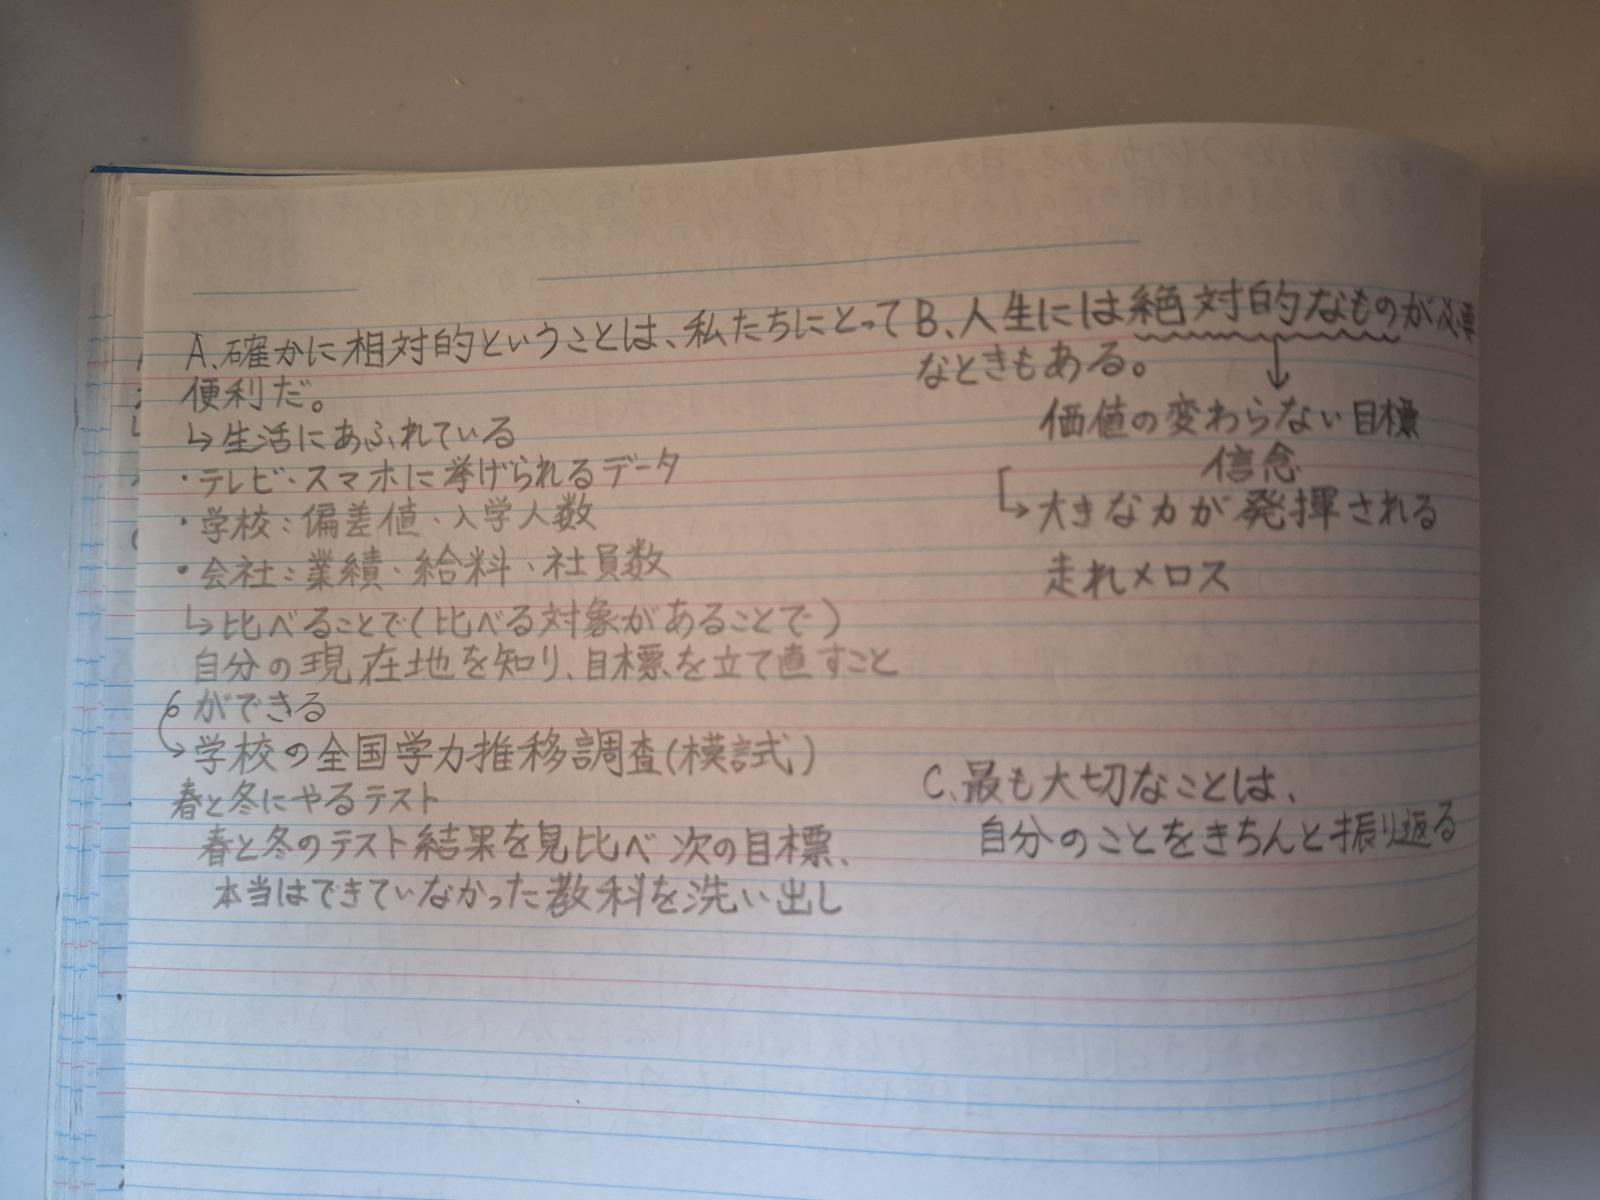 A、確かに相対的ということは、私たちにとって
便利だ。
↳生活にあふれている
・テレビ・スマホに挙げられるデータ
・学校：偏差値、入学人数
・会社：業績、給料、社員数
↳比べることで(比べる対象があることで)
自分の現在地を知り、目標を立て直すこと
ができる
学校の全国学力推移調査(模試)
春と冬にやるテスト
春と冬のテスト結果を見比べ次の目標、
本当はできていなかった教科を洗い出し
B、人生には絶対的なものが必要
なときもある。
↓
価値の変わらない目標
信念
↳大きな力が発揮される
走れメロス
C、最も大切なことは、
自分のことをきちんと振り返る